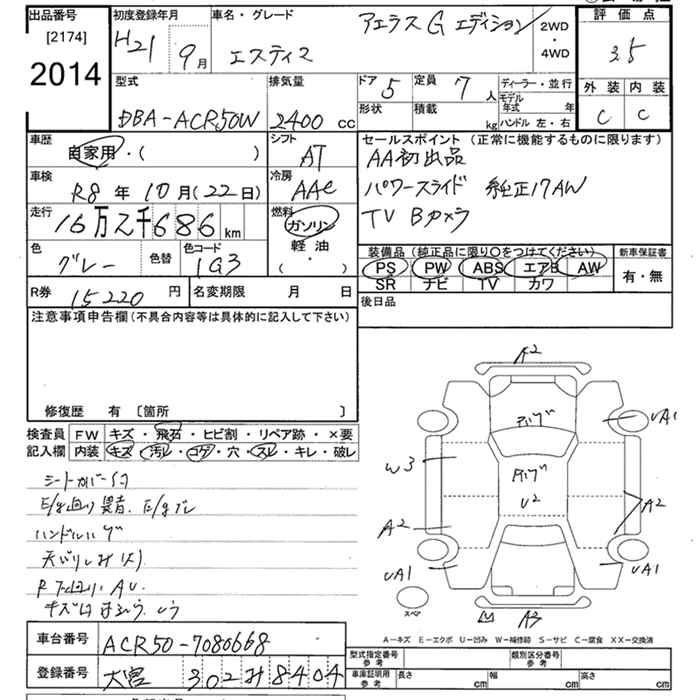 出品番号 [2174] 2014
初度登録年月 H21年 9月
車名・グレード エスティマ アエラス G エディション 2WD・4WD
評価点 3.5
外装 C 内装 C
型式 DBA-ACR50W
排気量 2400 cc
ドア 5 定員 7 人
形状 積載 kg
ディーラー・並行
モデル年式 年
ハンドル 左・右
車歴 自家用・( )
シフト AT
セールスポイント (正常に機能するものに限ります)
AA初出品
パワースライド 純正17AW
TV Bカメラ
車検 R8年 10月(22日)
冷房 AAC
走行 16万2千686 km
燃料 ガソリン 軽油 ( ・ )
色 グレー 色替 色コード 1G3
装備品 (純正品に限り○をつけてください) 新車保証書
PS PW ABS エアB AW 有・無
SR ナビ TV カワ
R券 15220 円 名変期限 月 日
後日品
注意事項申告欄 (不具合内容等は具体的に記入して下さい)
修復歴 有 〔箇所 〕
検査員 FW キズ・飛石・ヒビ割・リペア跡・×要
記入欄 内装 キズ・汚レ・コゲ・穴・スレ・キレ・破レ
シートカバー付
E/g回り異音. E/gブレ
天バリしみ
キズ
A2
UA1
W3
U2
A2
A2
UA1
UA1
スペア
A3
A-キズ E-エクボ U-凹み W-補修跡 S-サビ C-腐食 XX-交換済
車台番号 ACR50-7080668
登録番号 大宮 302 み 8404
型式指定番号 参考 類別区分番号 参考
車庫証明用 参考 長さ cm 幅 cm 高さ cm